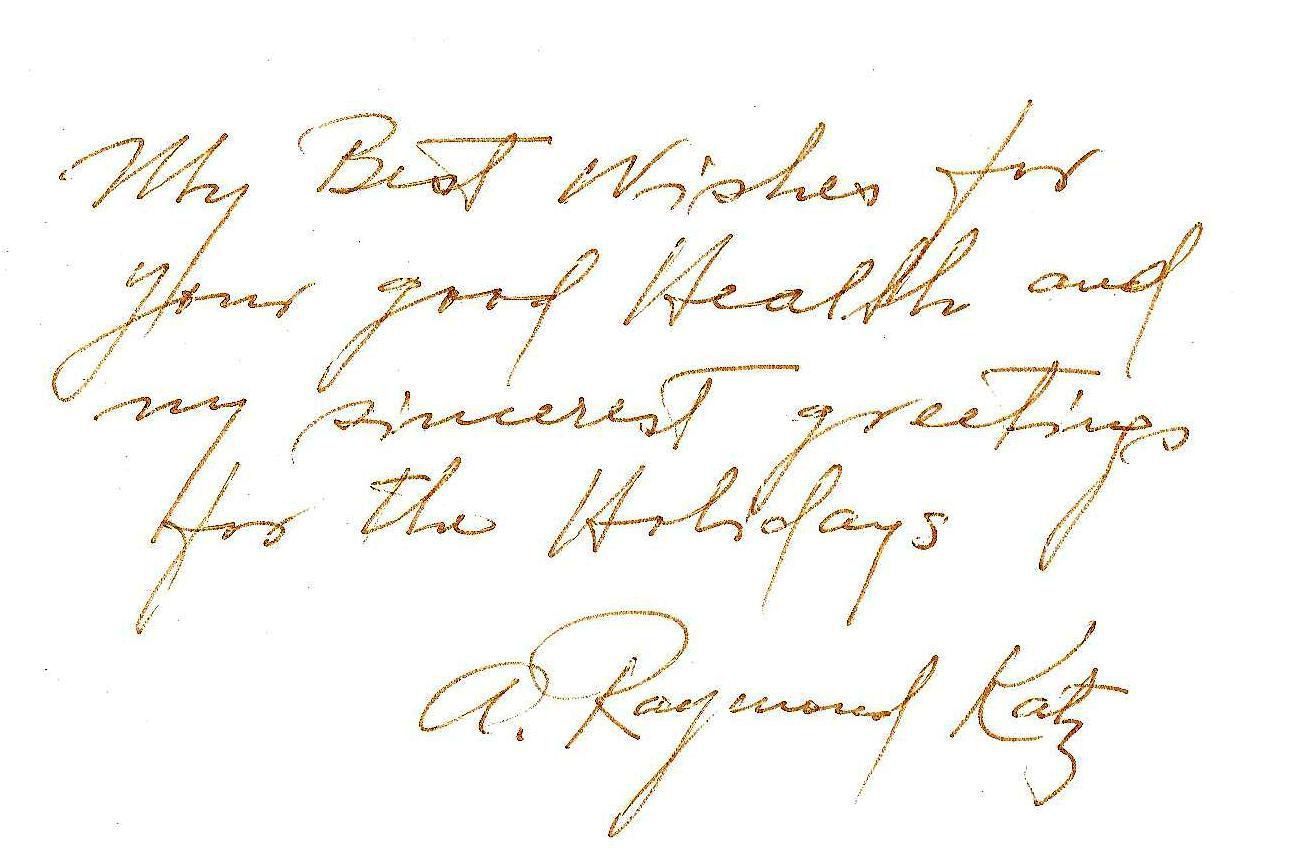 My Best Wishes for
your good Health and
my sincerest greetings
for the Holidays
A. Raymond Katz